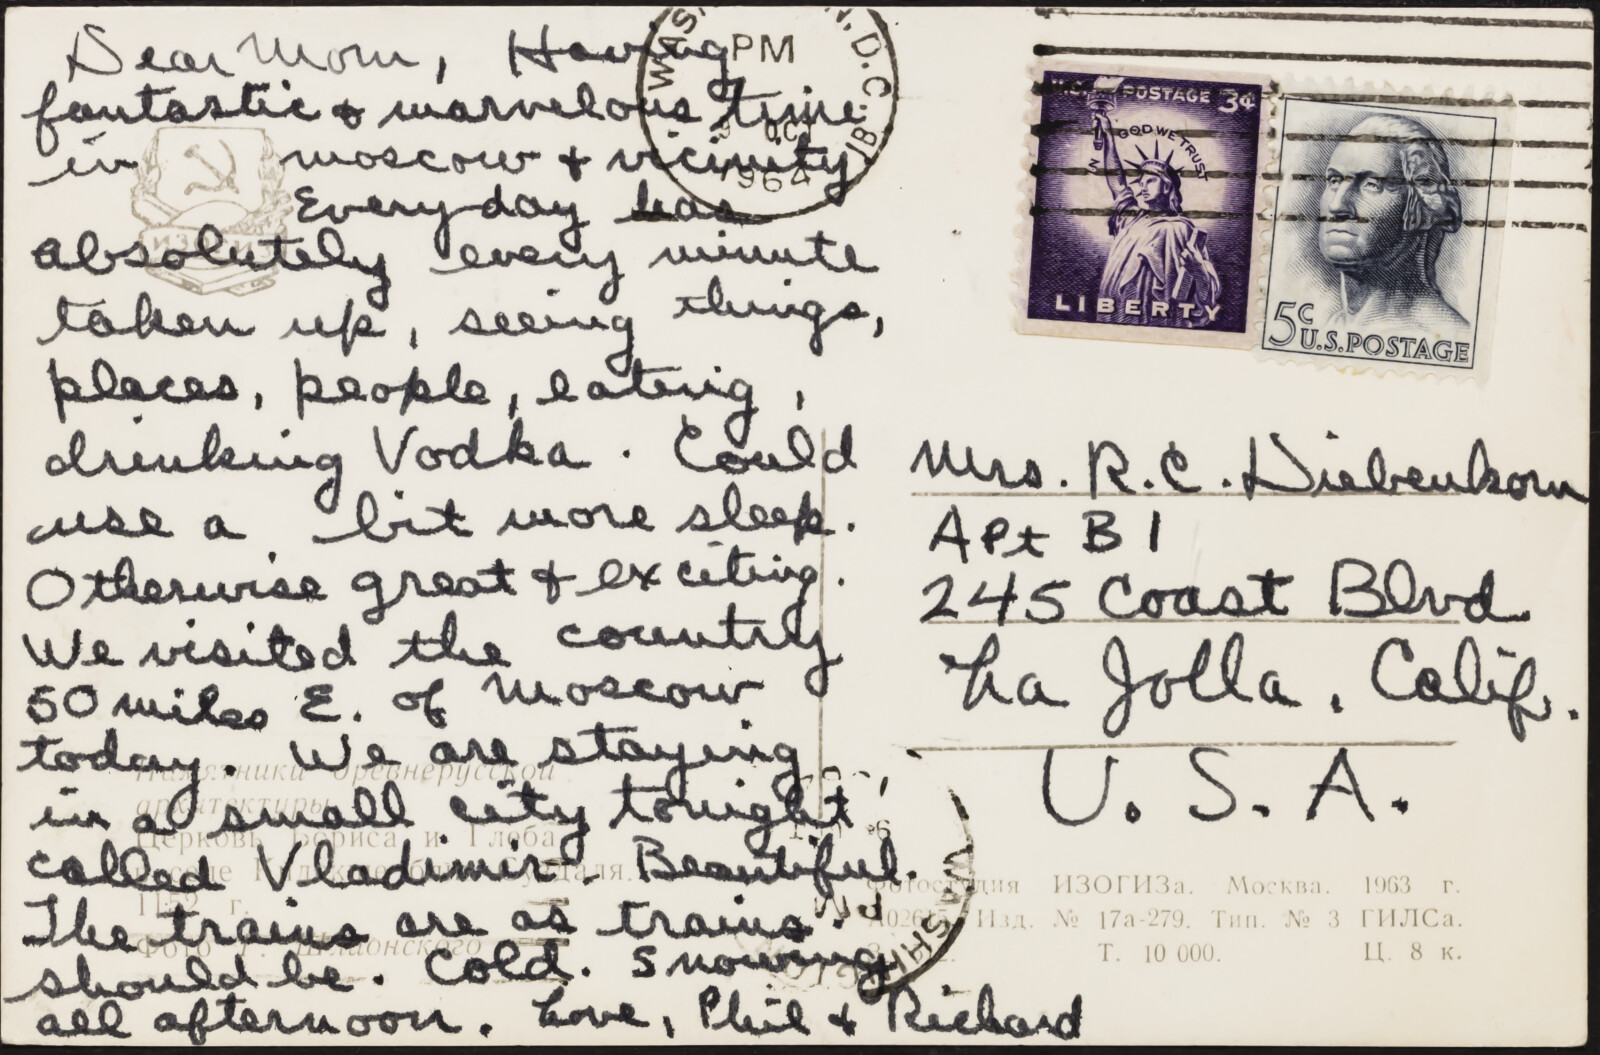 Dear Mom, Having
fantastic & marvelous time
in moscow & vicinity
Everyday has
absolutely every minute
taken up, seeing things,
places, people, eating,
drinking Vodka. Could
use a bit more sleep.
Otherwise great & exciting.
We visited the country
50 miles E. of Moscow
today. We are staying
in a small city tonight
called Vladimir. Beautiful.
The trains are as trains
should be. Cold. Snowing
all afternoon. Love, Phil & Richard
PM
OCT
1964
U.S. POSTAGE 3¢
IN GOD WE TRUST
LIBERTY
5c
U.S. POSTAGE
Mrs. R.C. Diebenkorn
Apt B1
245 Coast Blvd
La Jolla, Calif.
U.S.A.
Памятники древнерусской
архитектуры
Церковь Бориса и Глеба
1152 г.
Фотостудия ИЗОГИЗа. Москва. 1963 г.
Изд. № 17а-279. Тип. № 3 ГИЛСа.
Т. 10 000. Ц. 8 к.